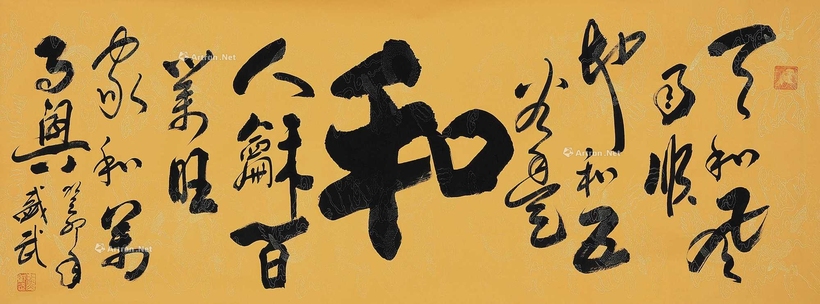 天和風
雨順
地和五
谷豐
和
人龢百
業旺
家和萬
事興
癸卯年
盛武
Artron.Net
Artron.Net
Artron.Net